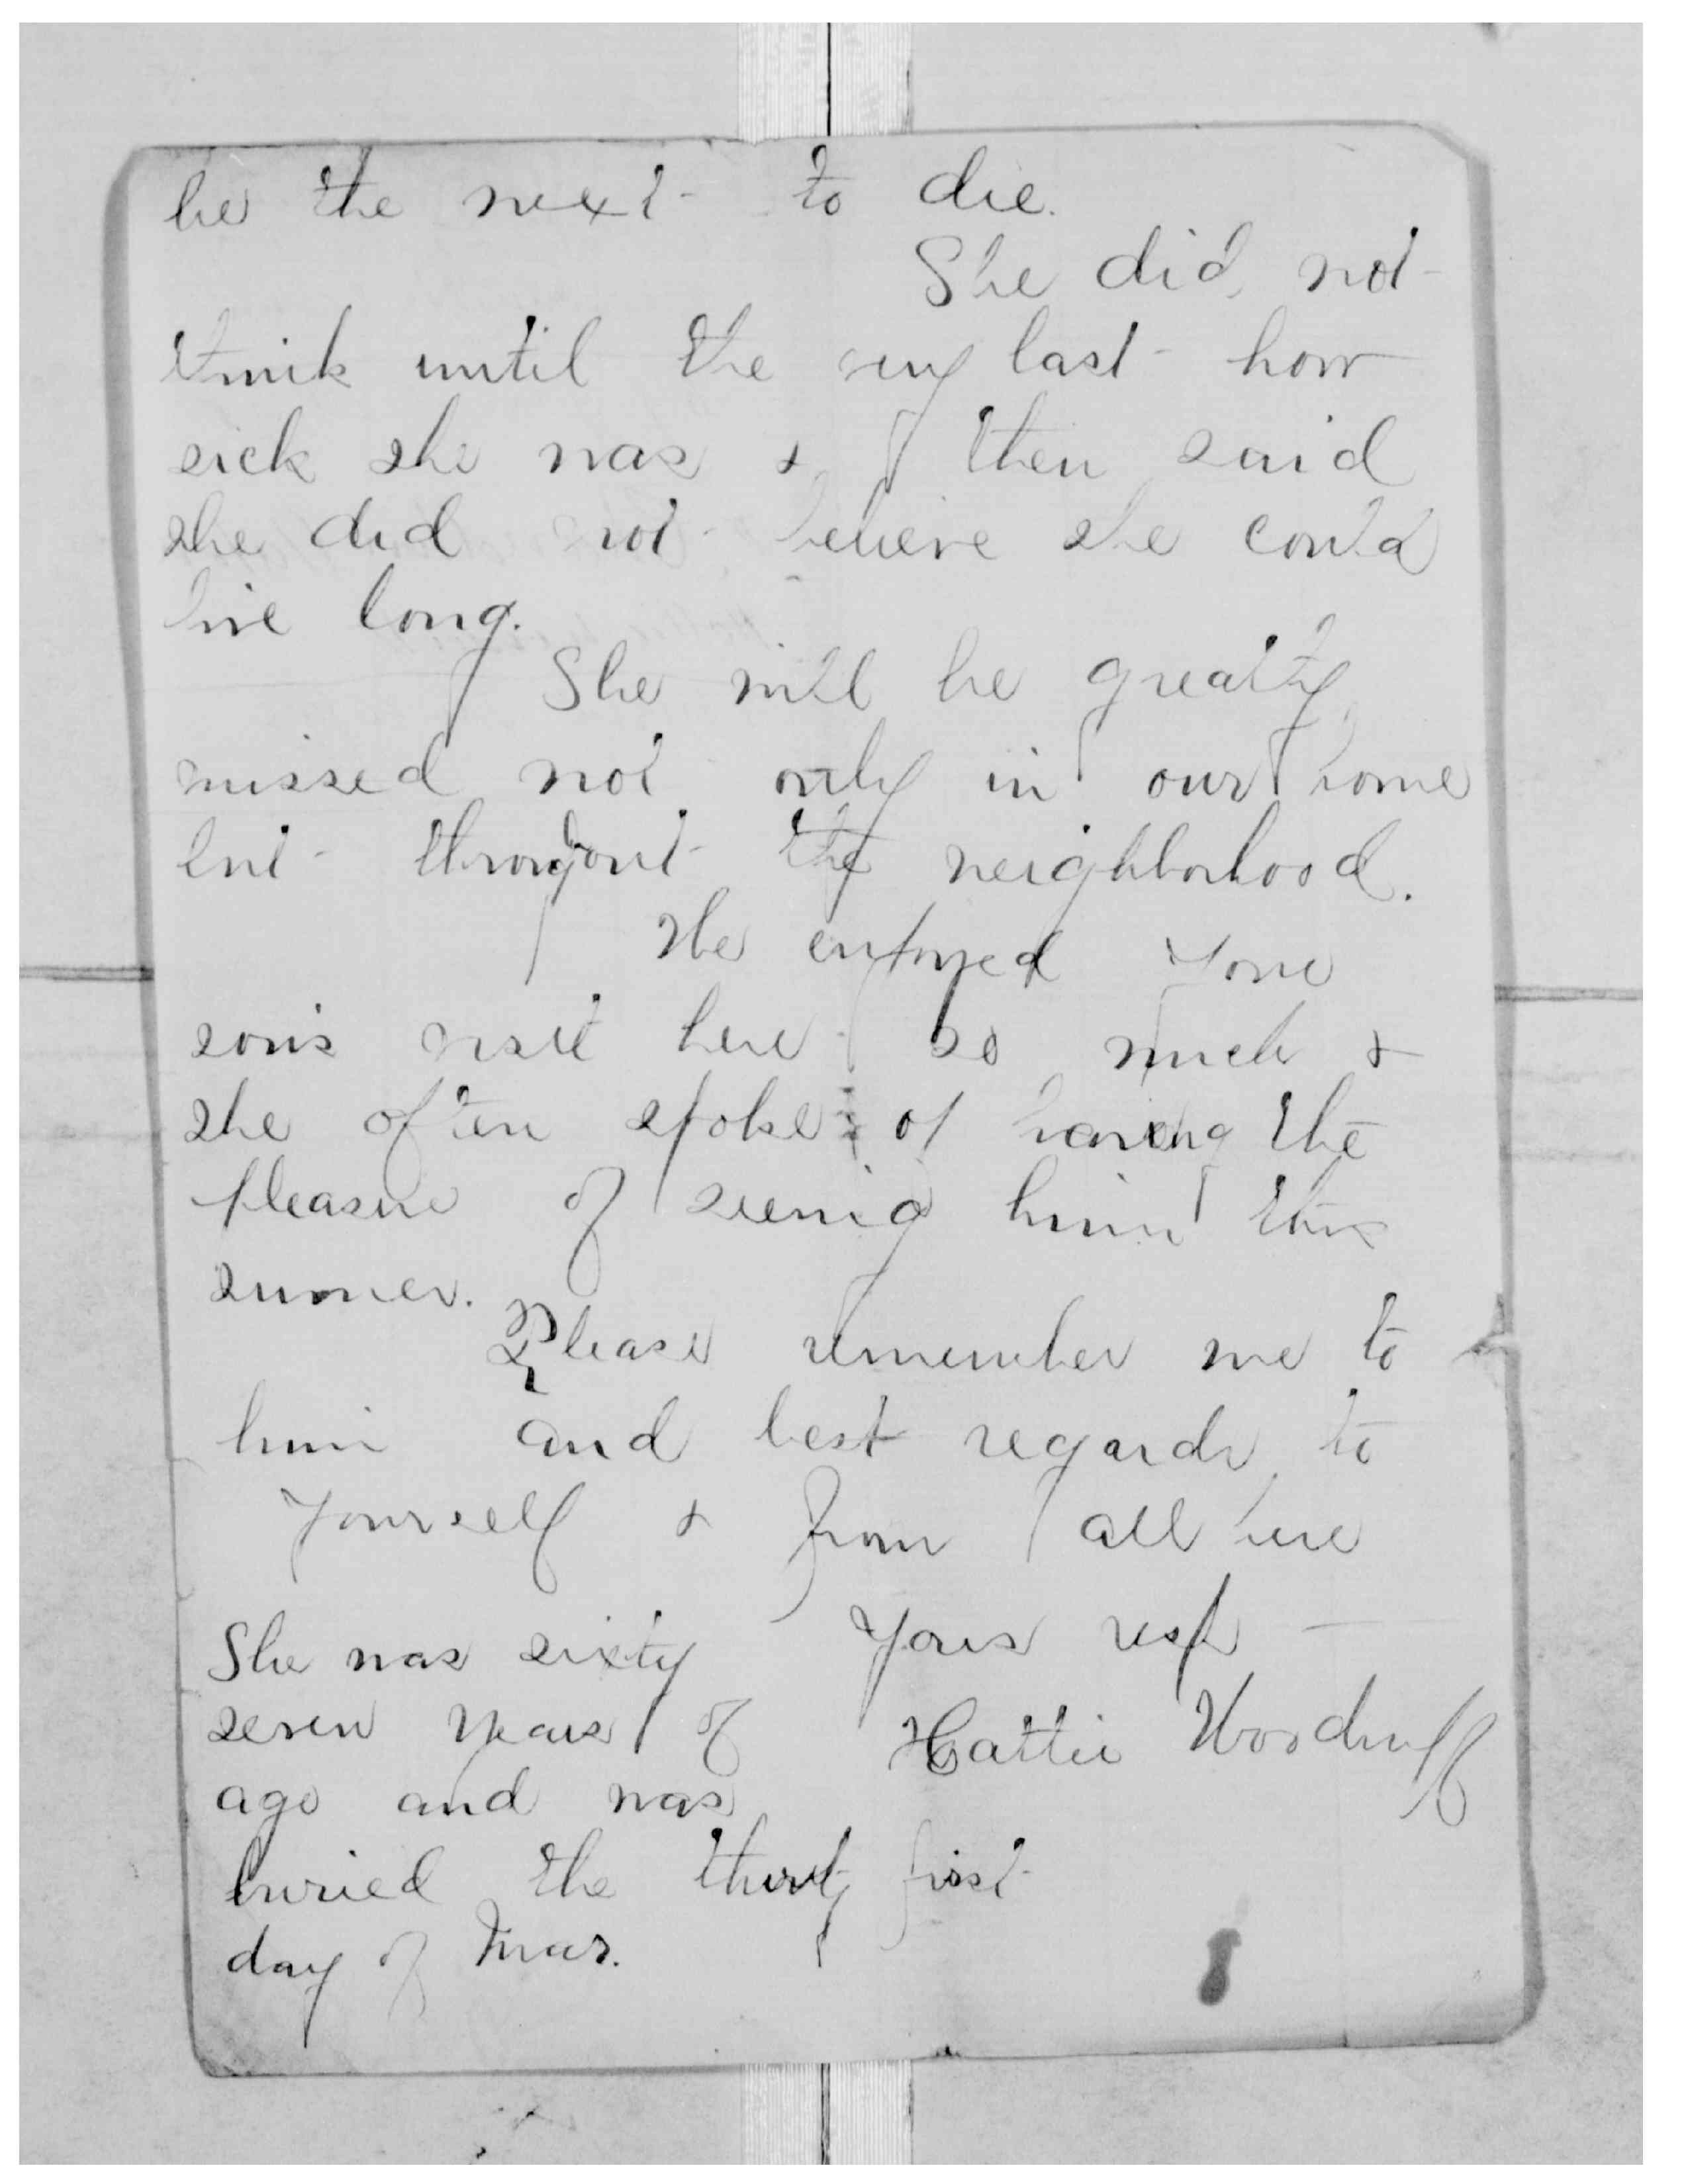 be the next to die.
She did not
think until the very last how
sick she was & then said
she did not believe she could
live long.
She will be greatly
missed not only in our home
but througout the neighborhood.
We enjoyed your
son's visit here so much &
she often spoke of having the
pleasure of seeing him this
summer.
Please remember me to
him and best regards to
yourself & from all here
Yours resp
Hattie Woodruff
She was sixty
seven years of
age and was
buried the thirty first
day of Mar.